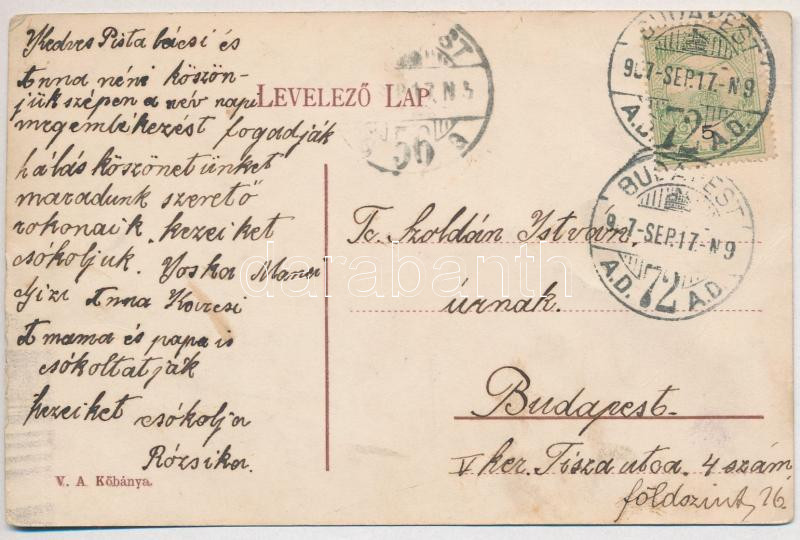 Kedves Pista bácsi és
Anna néni köszön-
jük szépen a név napi
megemlékezést fogadják
hálás köszönetünket
maradunk szerető
rokonaik, kezeiket
csókoljuk. Joska
Gizi Anna
A mama és papa is
csókoltatják
kezeiket csókolja
Rózsika.
V. A. Kőbánya.
LEVELEZŐ LAP.
BUDAPEST
907-SEP.17-N9
A.D. 72 A.D.
5
BUDAPEST
907-SEP.17-N9
A.D. 72 A.D.
17.N
56
Tc. Zoldán Istvan,
úrnak.
Budapest.
V ker. Tisza utca. 4 szám
földszint, 26.
darabanth